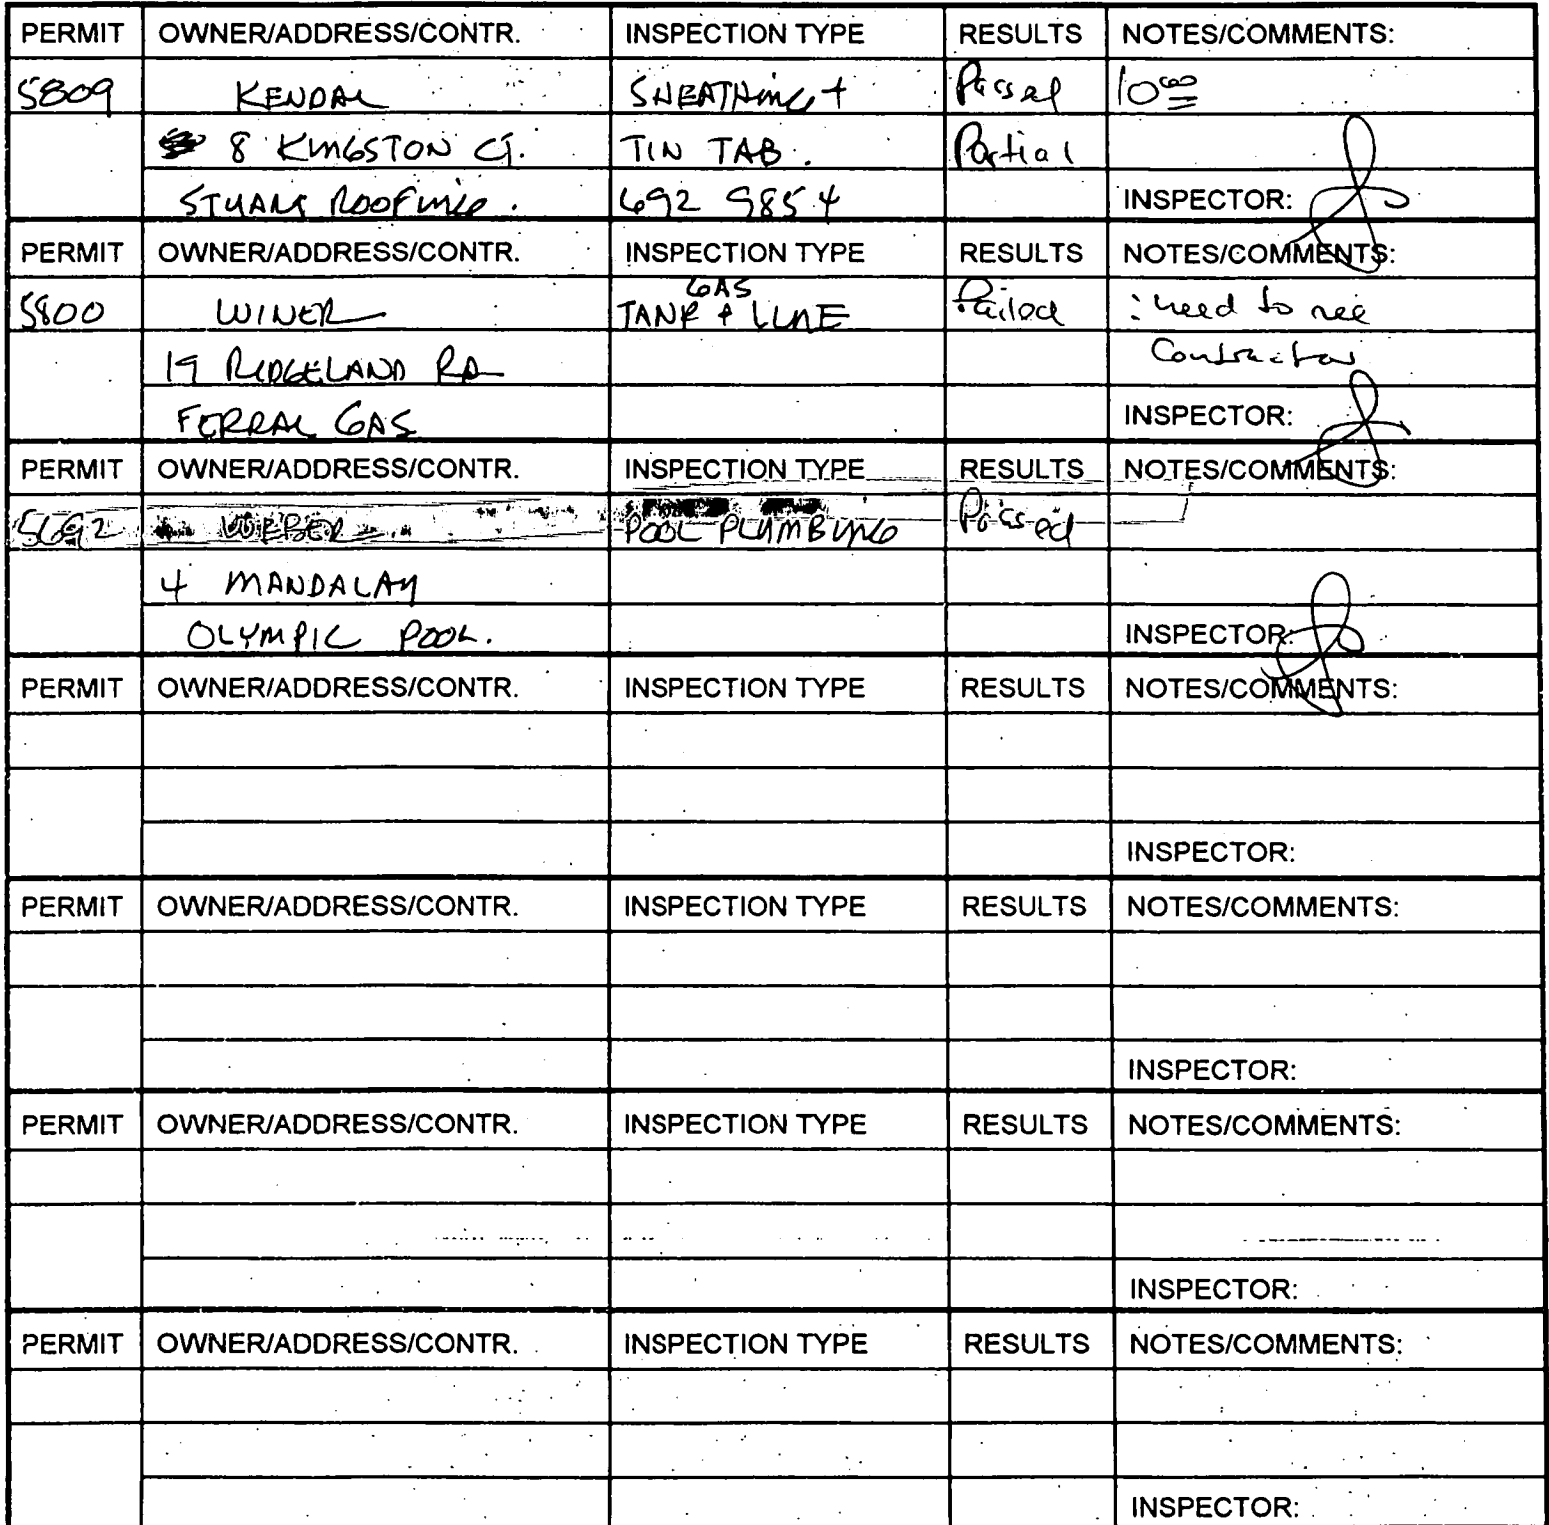 PERMIT OWNER/ADDRESS/CONTR. INSPECTION TYPE RESULTS NOTES/COMMENTS:
5809 KENDAL SHEATHING + Passed 10 00
8 KINGSTON CT. TIN TAB. Partial
STUART ROOFING. 692 9854 INSPECTOR:
PERMIT OWNER/ADDRESS/CONTR. INSPECTION TYPE RESULTS NOTES/COMMENTS:
5800 WINER GAS TANK & LINE Failed : need to see
19 RIDGELAND RD Contractor
FERRAL GAS INSPECTOR:
PERMIT OWNER/ADDRESS/CONTR. INSPECTION TYPE RESULTS NOTES/COMMENTS:
5692 WEBER POOL PLUMBING Passed
4 MANDALAY
OLYMPIC POOL. INSPECTOR:
PERMIT OWNER/ADDRESS/CONTR. INSPECTION TYPE RESULTS NOTES/COMMENTS:
INSPECTOR:
PERMIT OWNER/ADDRESS/CONTR. INSPECTION TYPE RESULTS NOTES/COMMENTS:
INSPECTOR:
PERMIT OWNER/ADDRESS/CONTR. INSPECTION TYPE RESULTS NOTES/COMMENTS:
INSPECTOR:
PERMIT OWNER/ADDRESS/CONTR. INSPECTION TYPE RESULTS NOTES/COMMENTS:
INSPECTOR: